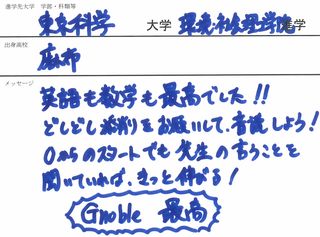 進学先大学　学部・科類等
東京科学 大学 環境・社会理工学院 進学
出身高校
麻布
メッセージ
英語も数学も最高でした!!
どしどし添削をお願いして、音読しよう!
0からのスタートでも先生の言うことを
聞いていれば、きっと伸びる!
Gnoble 最高